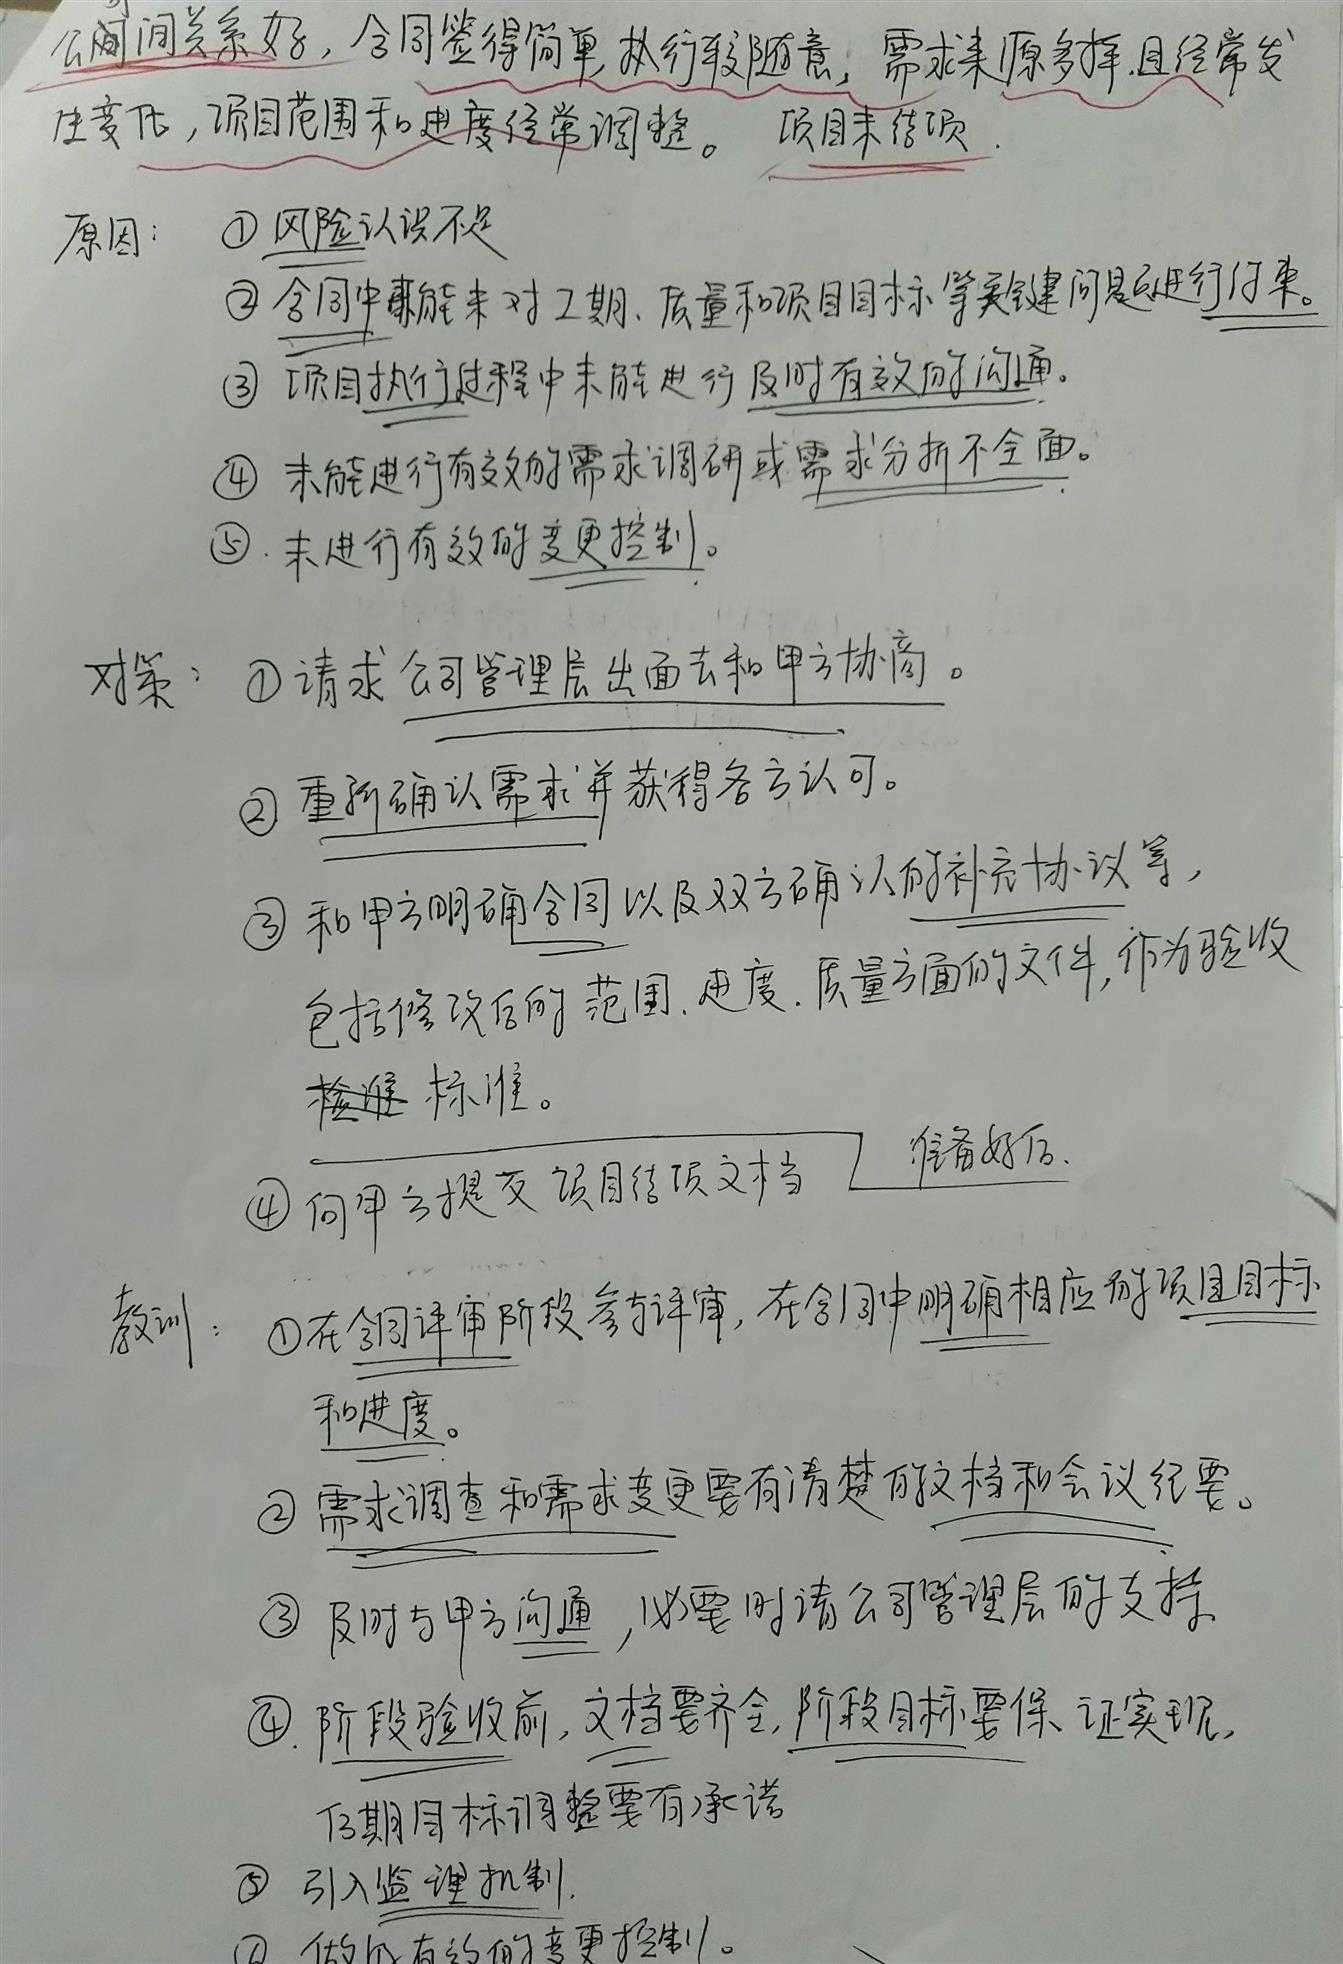 公司间关系好，合同签得简单，执行较随意，需求来源多样，且经常发
生变化，项目范围和进度经常调整。 项目未结项.
原因： ①风险认识不足
②合同中未能对工期、质量和项目目标等关键问题进行约束。
③项目执行过程中未能进行及时有效的沟通。
④未能进行有效的需求调研或需求分析不全面。
⑤.未进行有效的变更控制。
对策：①请求公司管理层出面去和甲方协商。
②重新确认需求并获得各方认可。
③和甲方明确合同以及双方确认的补充协议等，
包括修改后的范围、进度、质量方面的文件，作为验收
标准。
准备好后.
④向甲方提交项目结项文档
教训：①在合同评审阶段参与评审，在合同中明确相应的项目目标
和进度。
②需求调查和需求变更要有清楚的文档和会议纪要。
③及时与甲方沟通，必要时请公司管理层的支持
④.阶段验收前，文档要齐全，阶段目标要保证实现，
后期目标调整要有承诺
⑤引入监理机制.
做好有效的变更控制。